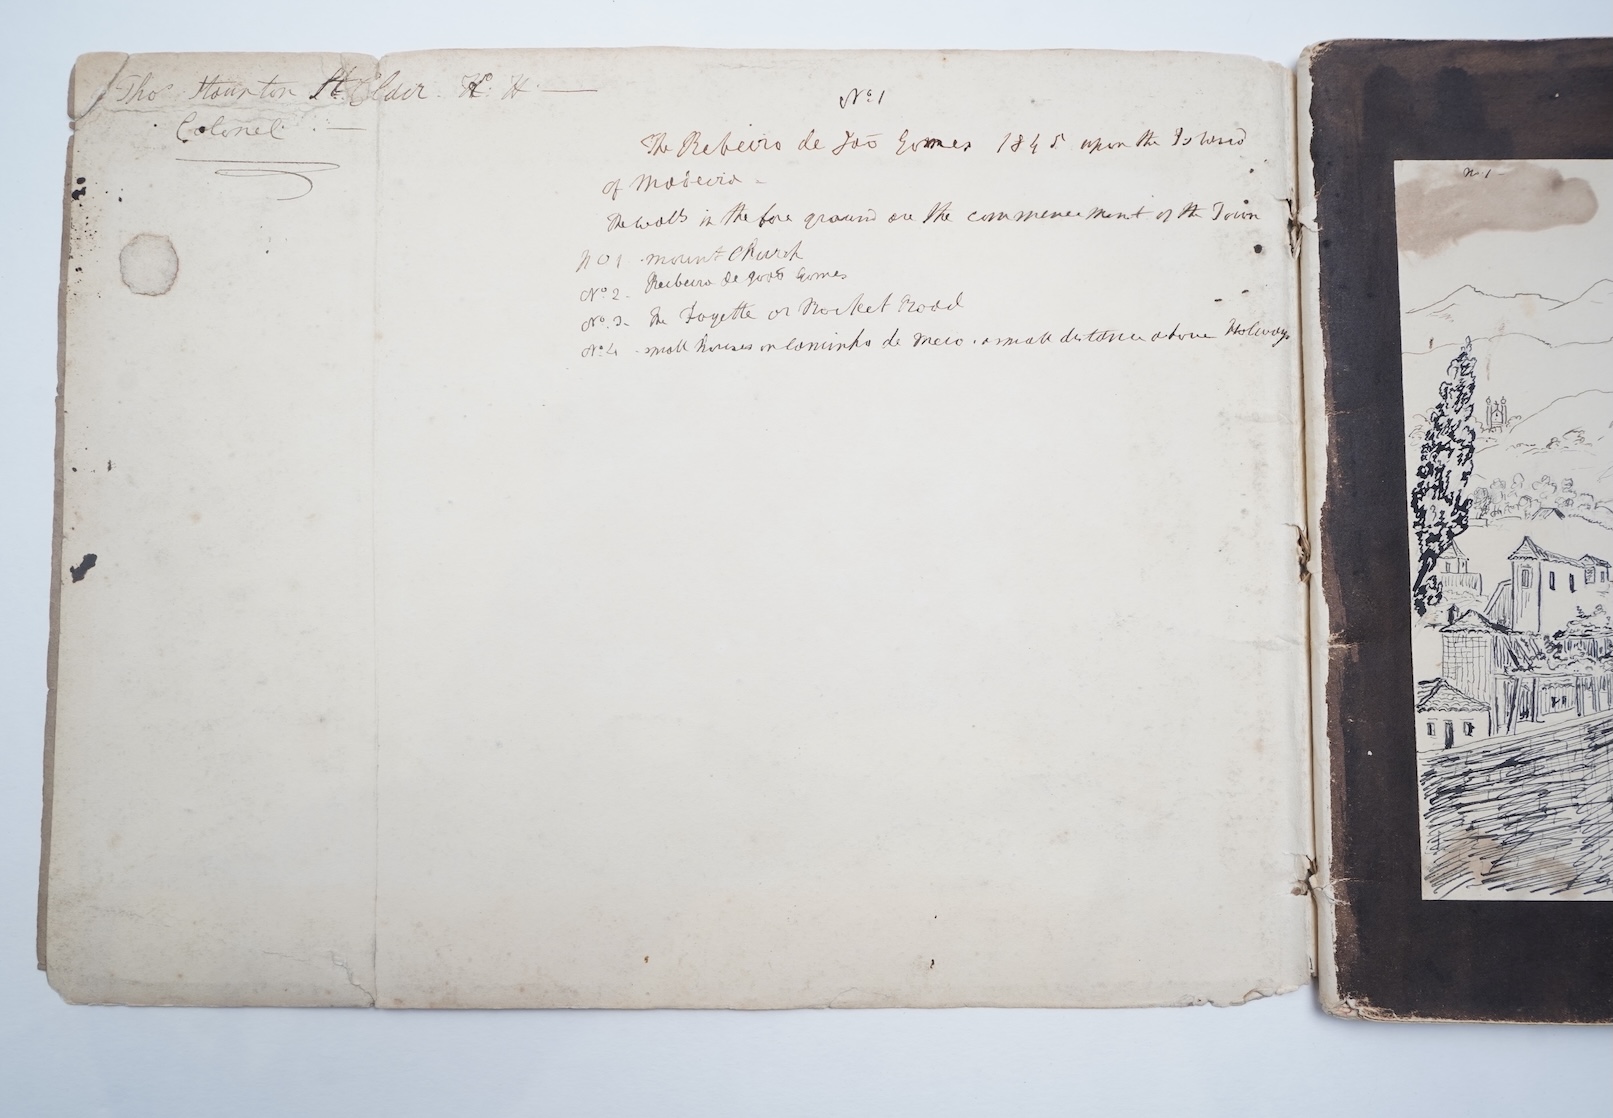 Tho.s Staunton St. Clair. K. H.
Colonel
No. 1
The Rebeiro de Joõ Gomes 1845 upon the Island
of Madeira -
The walls in the fore ground are the commencement of the Town
No 1 mount Church
No. 2. Reibeiro de Joõ Gomes
No. 3. The Fayette or Rocket Road
No. 4 small houses on Caminho de Meio. a small distance above Holways
n. 1